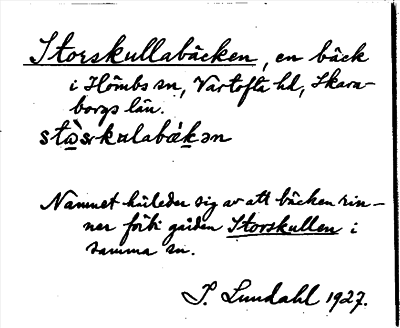 Storskullabäcken, en bäck
i Hömbs sn, Vartofta hd, Skara-
borgs län.
stò̱rskulabǽkən
Namnet härleder sig av att bäcken rin-
ner förbi gården Storskullen i
samma sn.
I. Lundahl 1927.